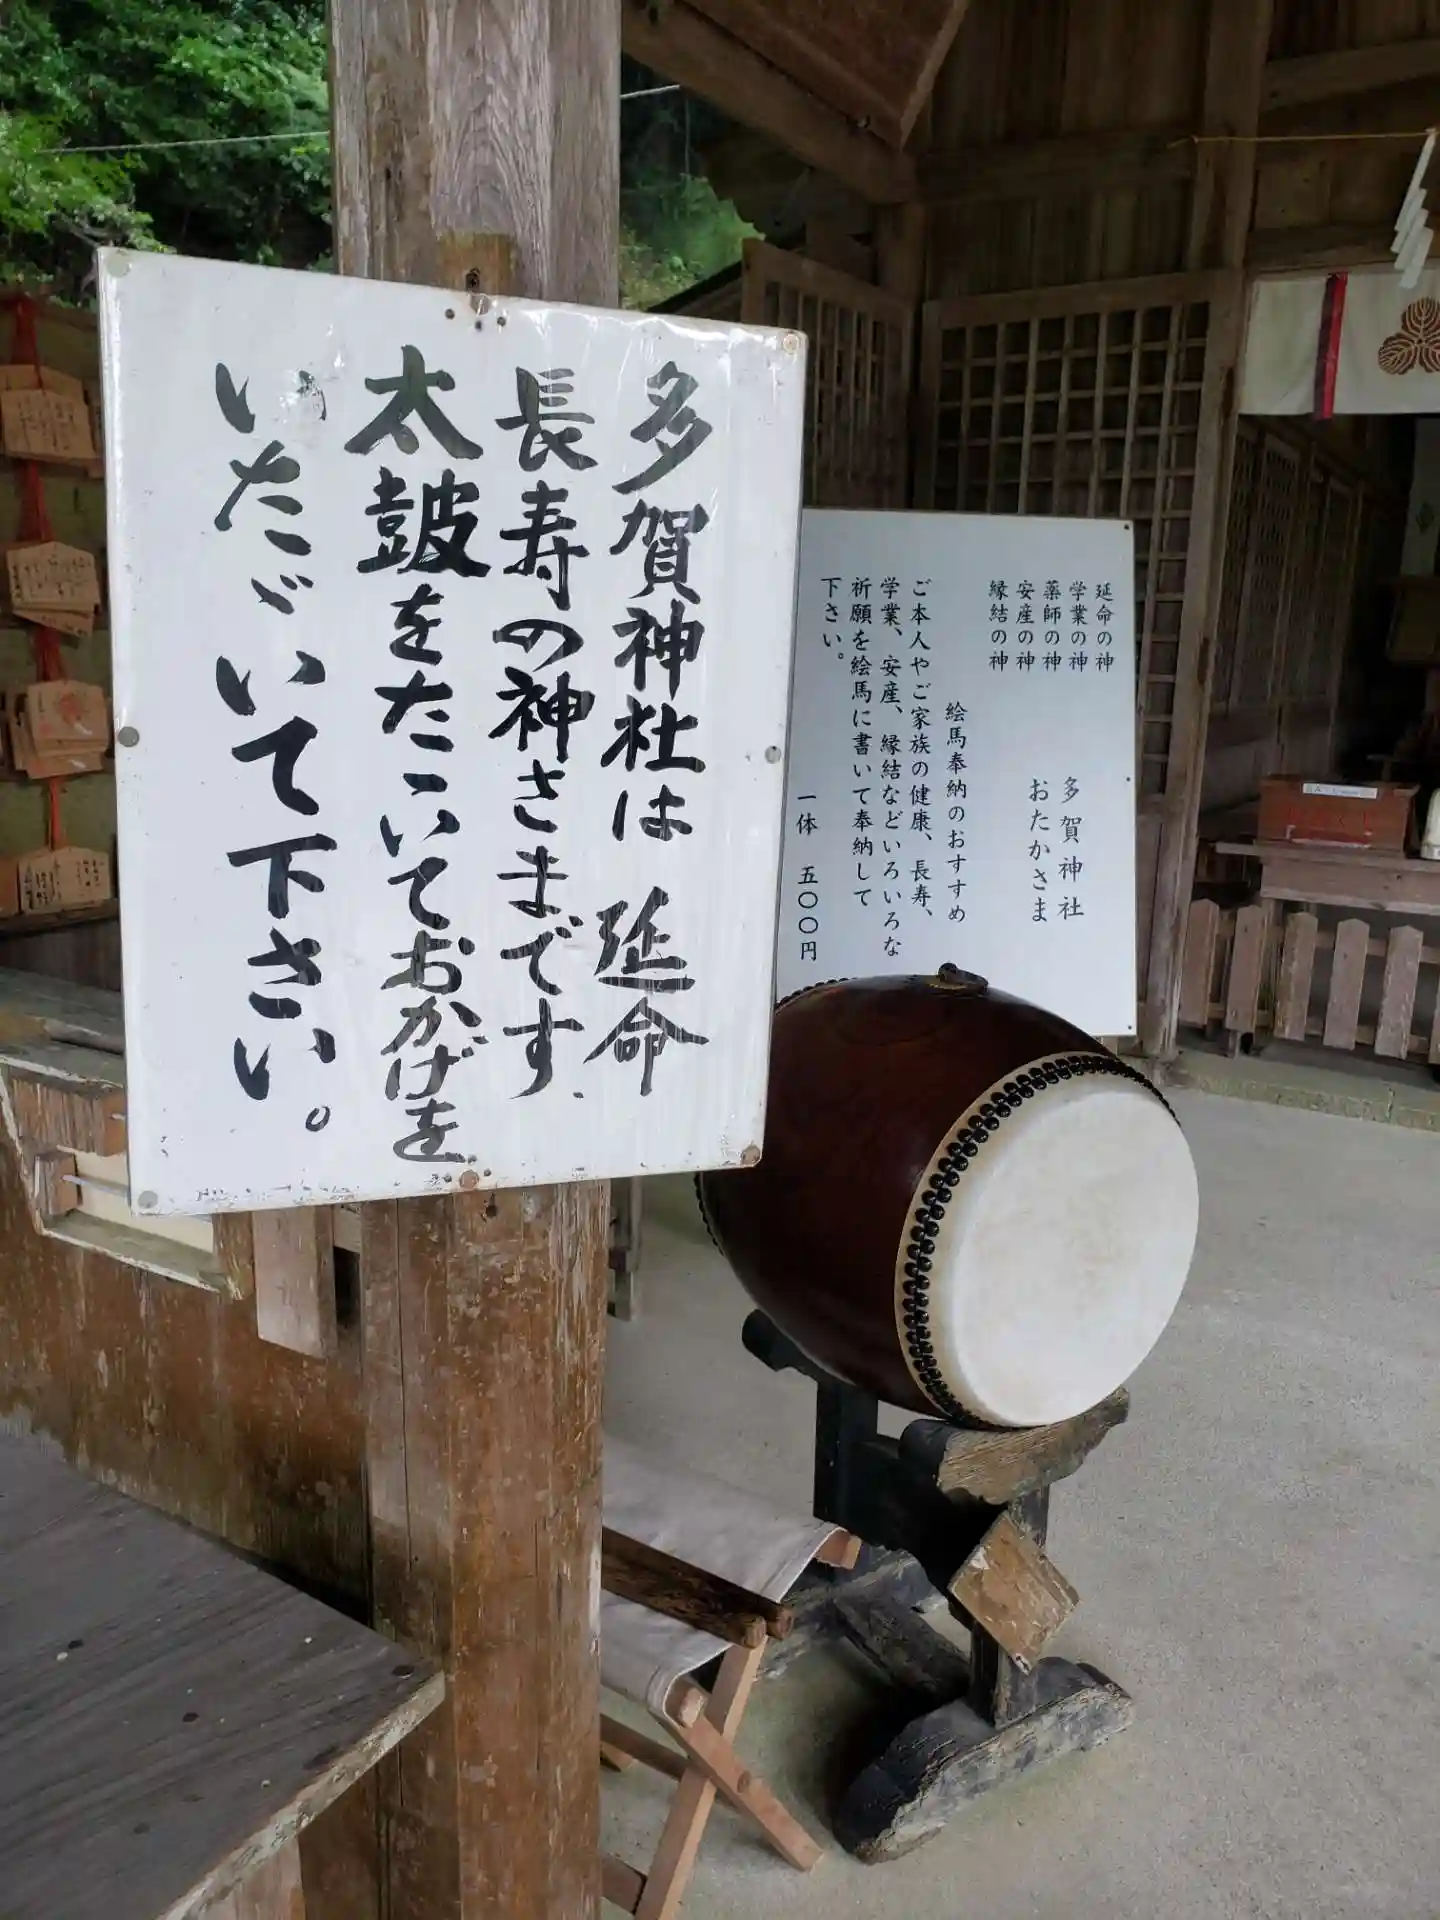 多賀神社は 延命
長寿の神さまです、
太鼓をたゝいておかげを
いたゞいて下さい。
延命の神
学業の神
薬師の神
安産の神
縁結の神
多賀神社
おたかさま
絵馬奉納のおすすめ
ご本人やご家族の健康、長寿、
学業、安産、縁結などいろいろな
祈願を絵馬に書いて奉納して
下さい。
一体 五〇〇円